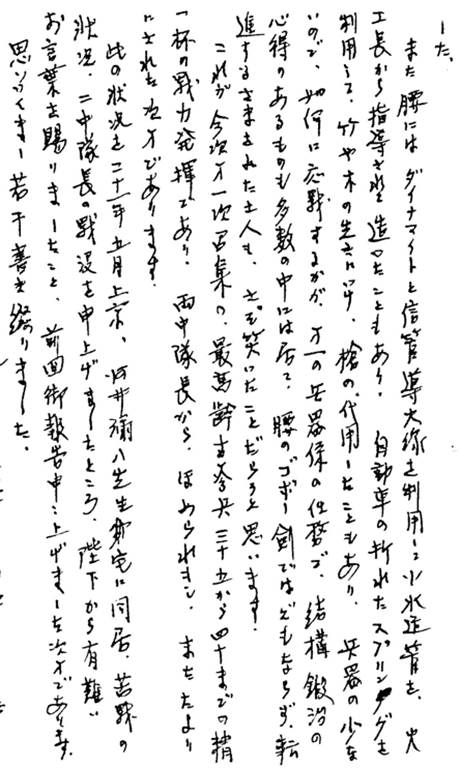 した。
また腰にはダイナマイトと信管導火線を利用して小水道管を、火
工長から指導され造ったこともあり、自動車の折れたスプリングを
利用して、竹や木の生きにつけ、槍の代用したこともあり、兵器の少な
いので、如何に応戦するかが、才一の兵器係の任務で、結構鍛冶の
心得のあるものも多数の中には居て、腰のゴボー剣ではどもならず、転
進するさまをみた土人も、さぞ笑いたことだらうと思います。
これが今次才一次召集の、最高齢する老兵三十五から四十までの精
一杯の戦力発揮であり、両中隊長から、ほめられもし、またたより
にされた次才であります。
此の状況を二十一年五月上京、河井弥八先生御宅に同居、苦戦の
状況、二中隊長の戦没を申上げましたところ、陛下から有難い
お言葉を賜りましたこと、前回御報告申し上げました次才であります。
思いつくまま若干書き綴りました。